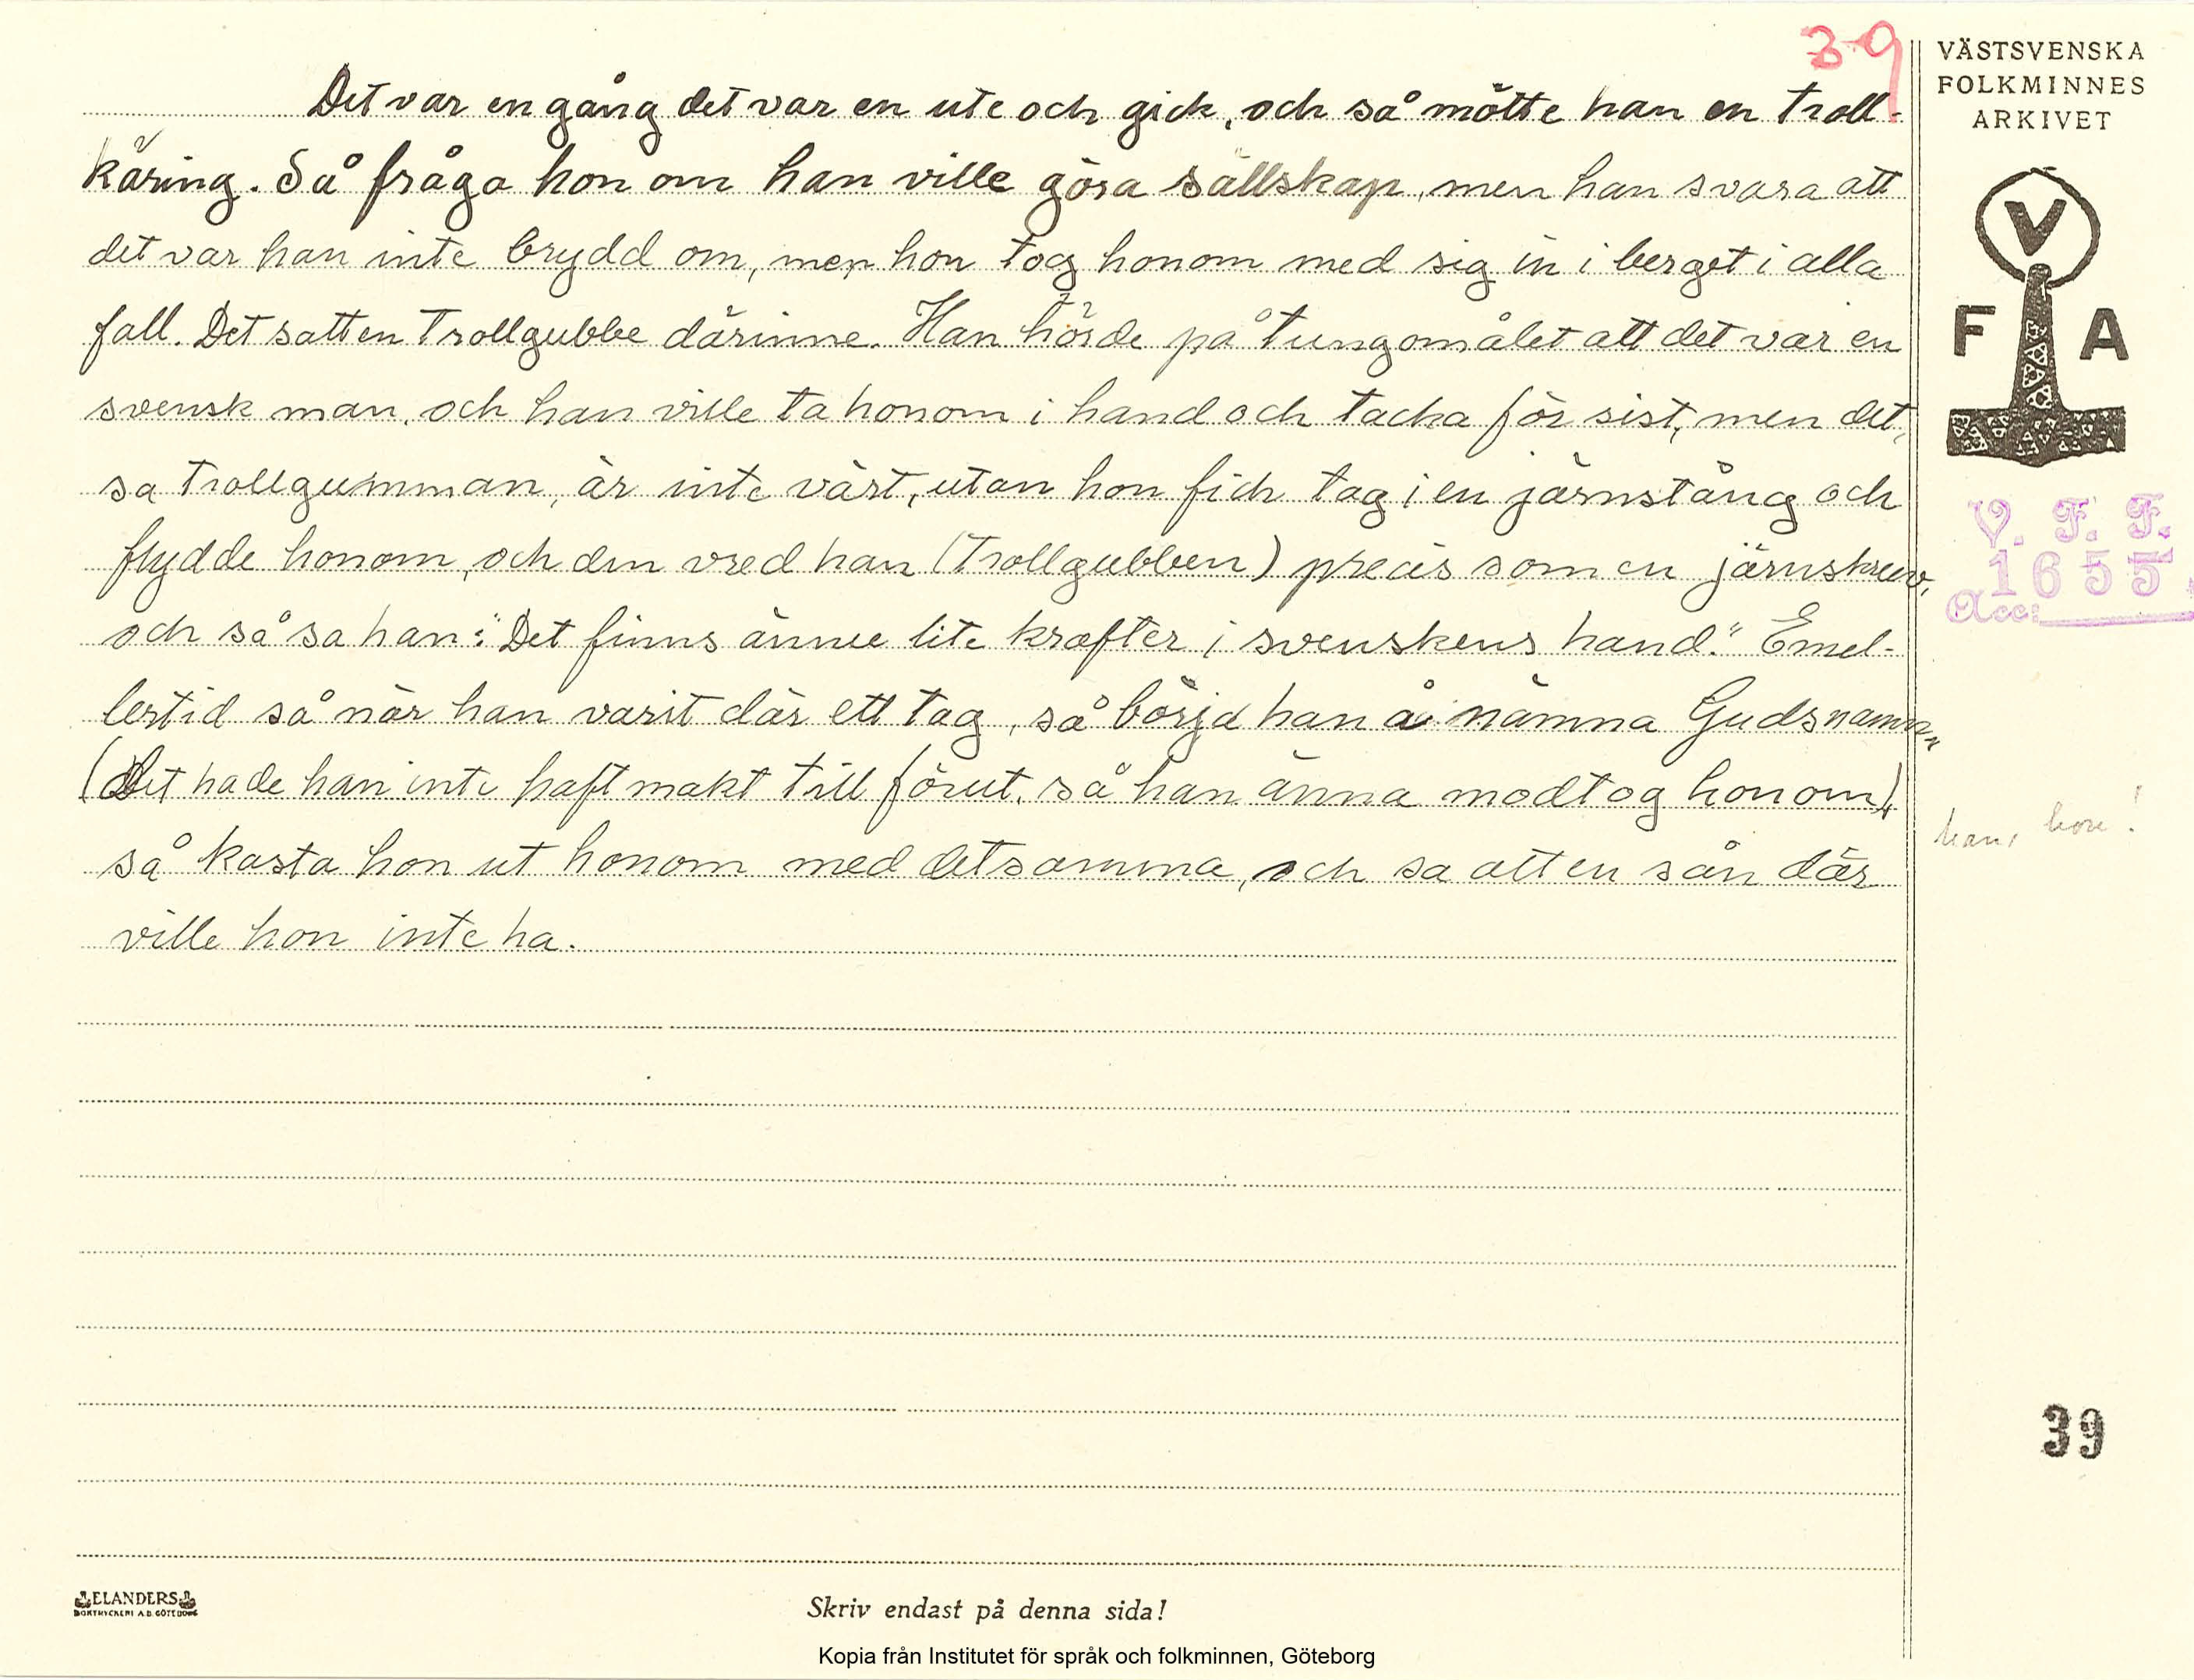 39
Det var en gång det var en ute och gick, och så mötte han en troll-
käring. Så fråga hon om han ville göra sällskap, men han svara att
det var han inte brydd om, men hon tog honom med sig in i berget i alla
fall. Det satt en trollgubbe därinne. Han hörde på tungomålet att det var en
svensk man, och han ville ta honom i hand och tacka för sist, men det,
sa trollgumman, är inte värt, utan hon fick tag i en järnstång och
flydde honom, och den vred han (trollgubben) precis som en järnskruv,
och så sa han: "Det finns ännu lite krafter i svenskens hand." Emel-
lertid så när han varit där ett tag, så börja han å nämna Gudsnamn
(Det hade han inte haft makt till förut, så han änna modtog honom),
så kasta hon ut honom med detsamma, och sa att en sån där
ville hon inte ha.
VÄSTSVENSKA
FOLKMINNES
ARKIVET
V
F A
V. F. F.
1655
Acc:
han, hon!
39
ELANDERS
BOKTRYCKERI A.B. GÖTEBORG
Skriv endast på denna sida!
Kopia från Institutet för språk och folkminnen, Göteborg